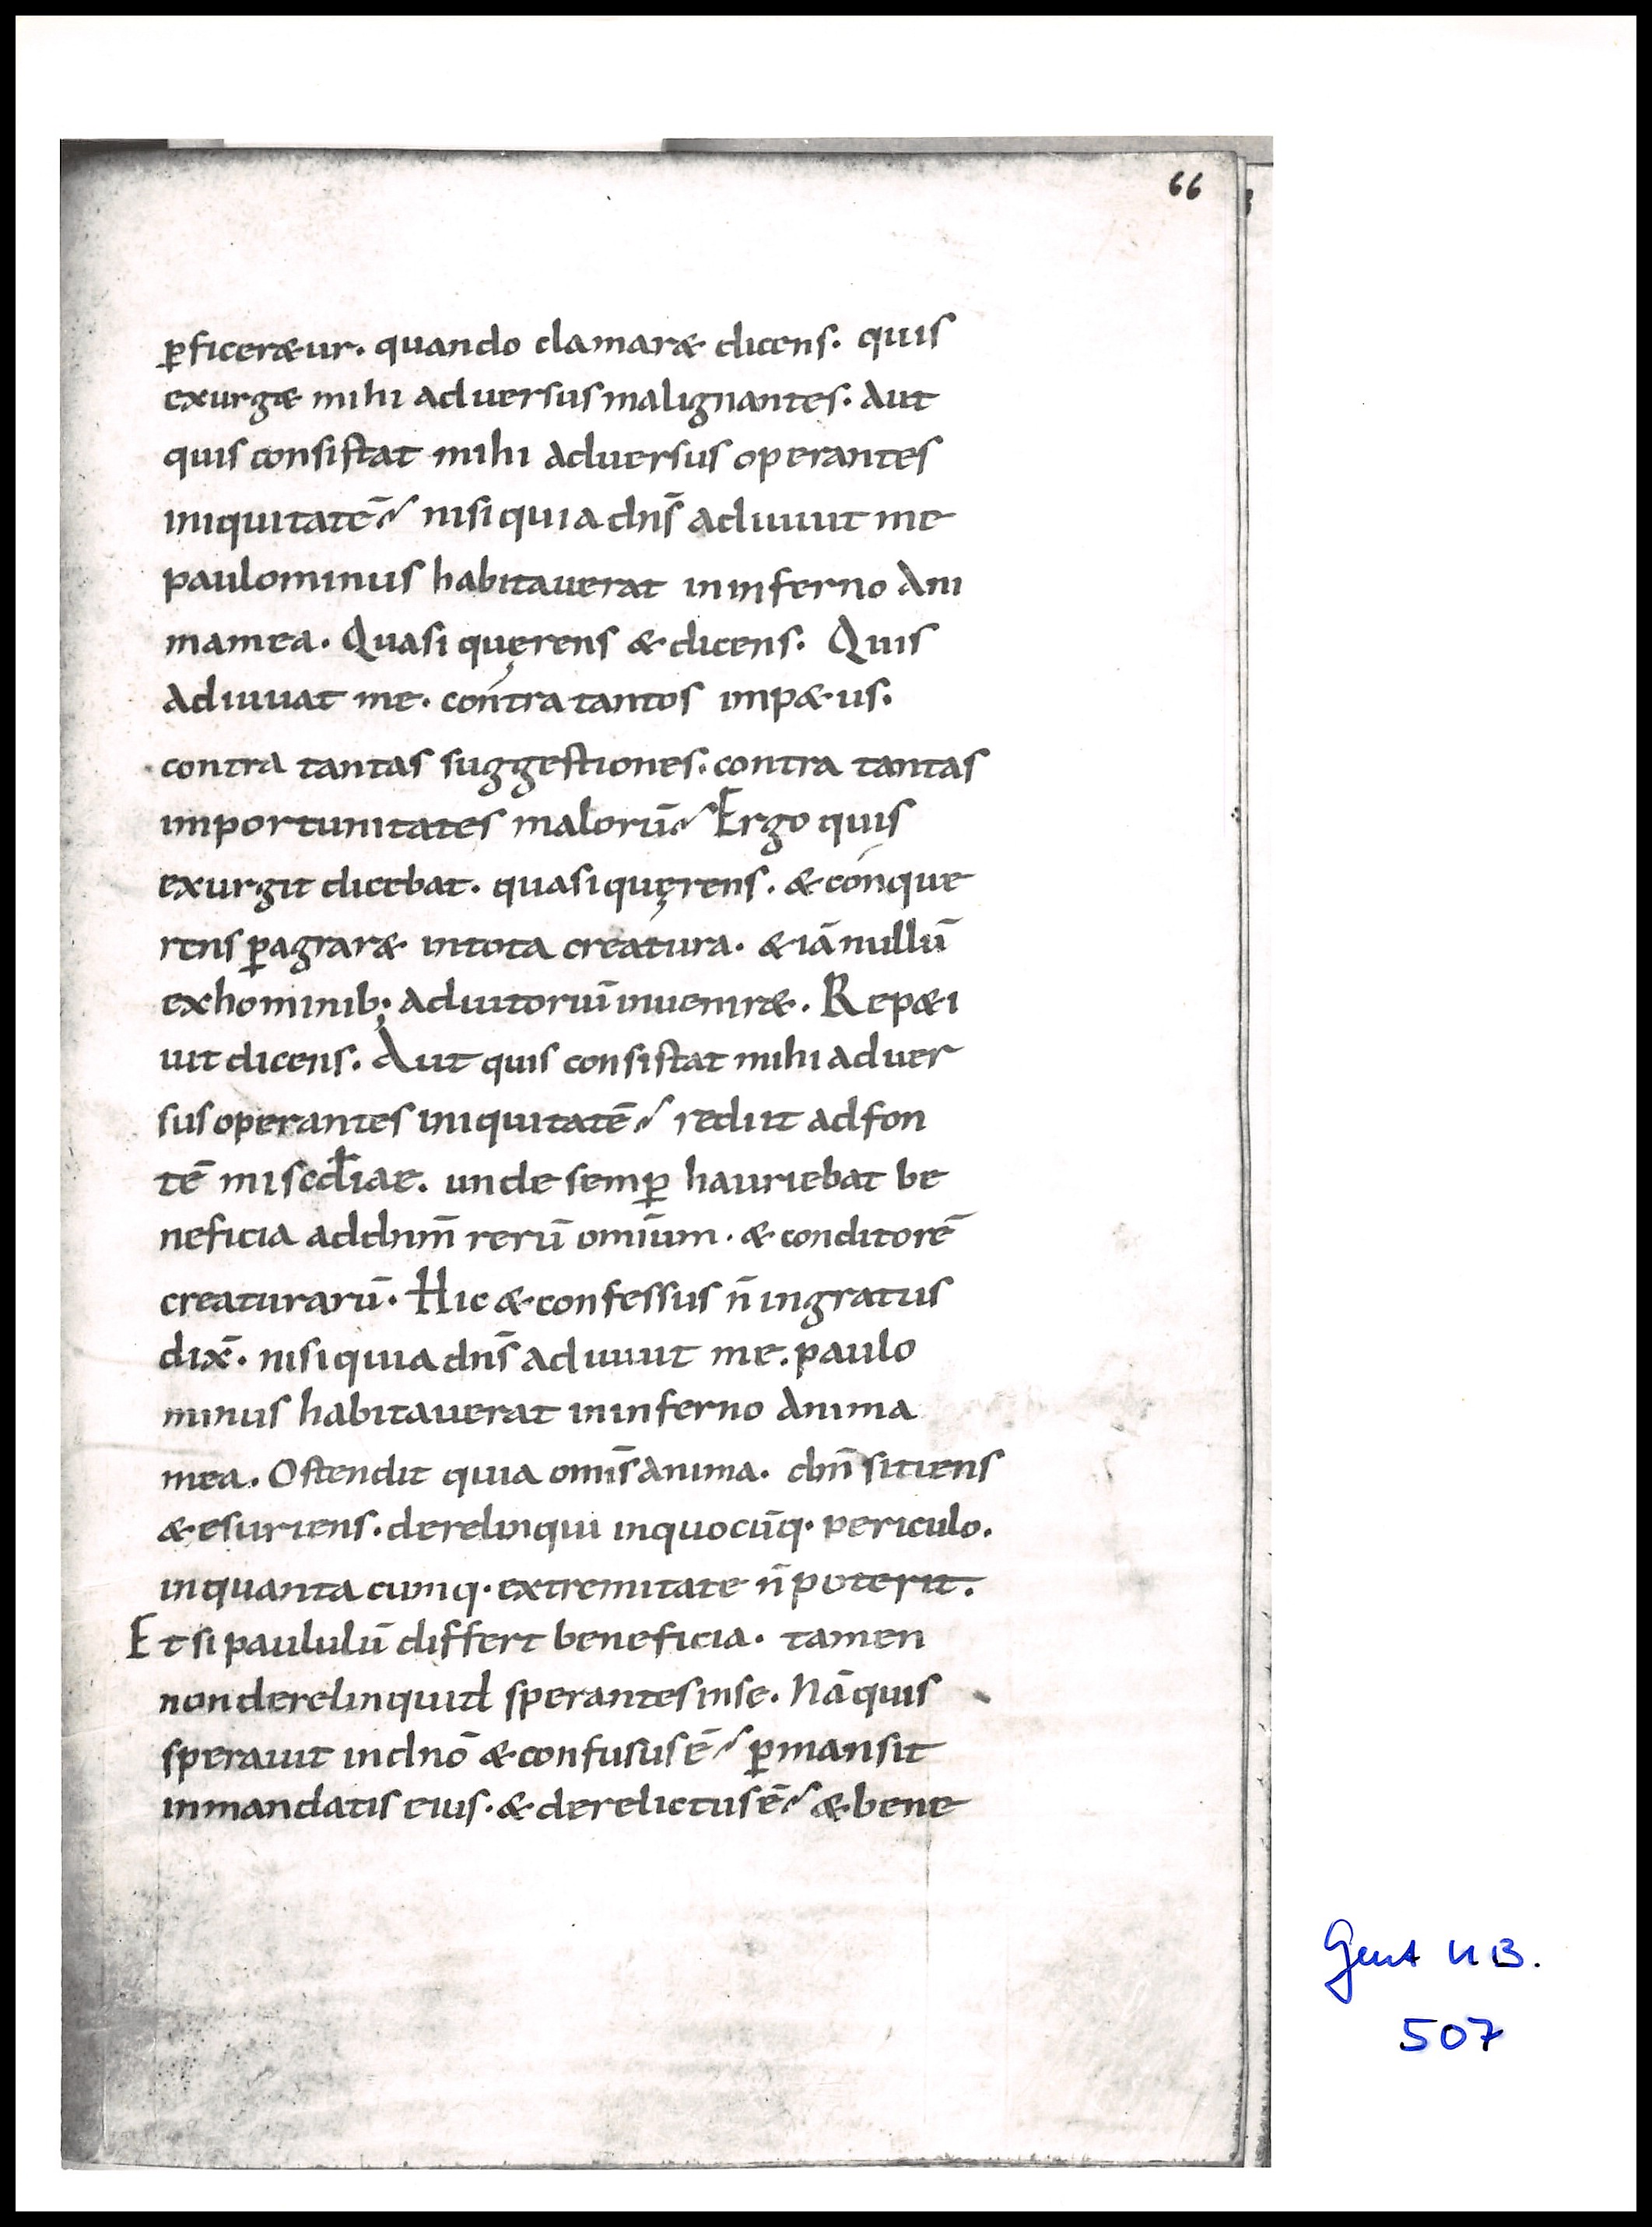 66
ꝑficer&ur. quando clamar& dicens. quis
exurg& mihi aduersus malignantes. Aut
quis consistat mihi aduersus operantes
iniquitatē? nisi quia dn̄s adiuuit me
paulominus habitauerat in inferno Ani
mamea. Quasi quęrens & dicens. Quis
Adiuuat me. contra tantos imp&us.
contra tantas suggestiones. contra tantas
importunitates malorū? Ergo quis
exurgit dicebat. quasi quęrens. & conque
rens ꝑagrar& in tota creatura. & iā nullū
ex hominib; adiutoriū inuenir&. Rep&i
uit dicens. Aut quis consistat mihi aduer
sus operantes iniquitatē? rediit ad fon
tē miscd̄iae. unde semꝑ hauriebat be
neficia ad dnm̄ rerū omīum. & conditorē
creaturarū. Hic & confessus n̄ ingratus
dix̄. nisi quia dn̄s adiuuit me. paulo
minus habitauerat in inferno Anima
mea. Ostendit quia omīs anima. dnm̄ sitiens
& esuriens. derelinqui in quocūq. periculo.
in quanta cumq. extremitate n̄ poterit.
Et si paululū differt beneficia. tamen
non derelinquid sperantes in se. Nā quis
sperauit in dnō & confusus ē? ꝑmansit
in mandatis eius. & derelictus ē? & bene
Gent UB.
507